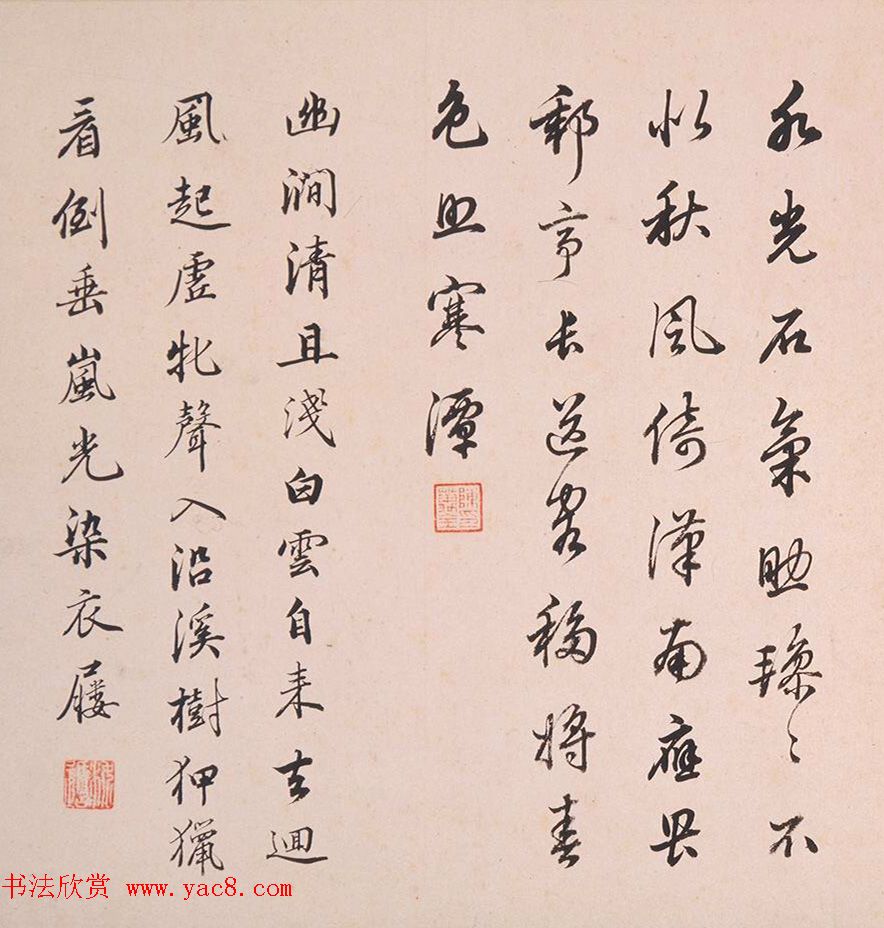 水光石氣助毿〻不
似秋風倚漢南應畏
郵亭長送客移將春
色照寒潭
幽澗清且淺白雲自来去迴
風起虛牝聲入沿溪樹狎獵
看倒垂嵐光染衣屨
书法欣赏 www.yac8.com